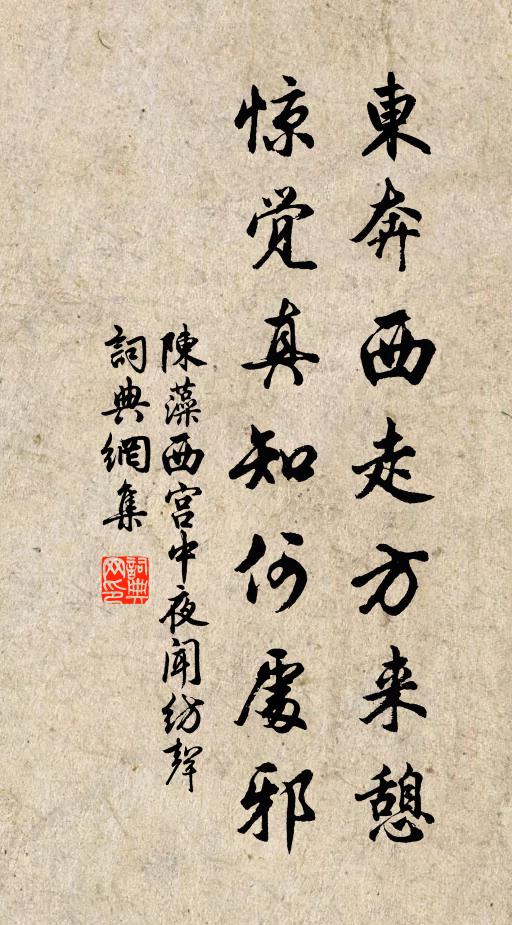 東奔西走方来憩
惊觉真知何處邪
陳藻西宫中夜闻纺聲
詞典網集
詞典网印